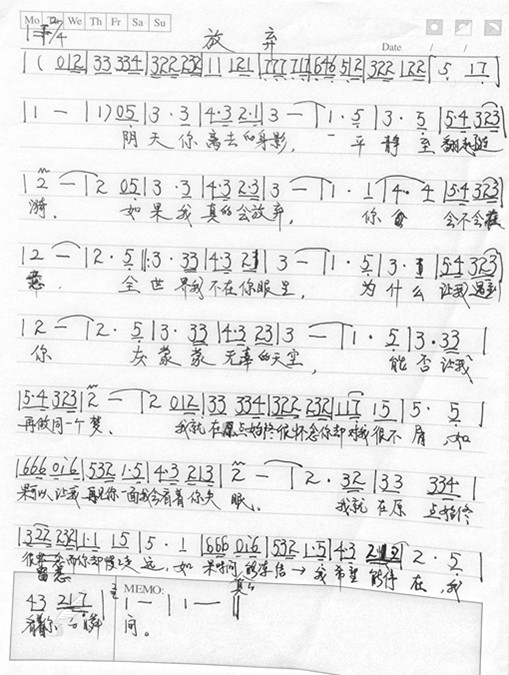 Mo Tu We Th Fr Sa Su
放弃
Date / /
1= /4
|( 012 | 33 334 | 322 232 | 11 121 | 777 717 | 646 512 | 322 122 | 5 17 |
| 1 — | 1) 05 | 3 · 3 | 4·3 2·1 | 3 — | 1 · 5 | 3 · 5 | 5·4 323 |
阴天你离去的身影, 平静
| 2 — | 2 05 | 3 · 3 | 4·3 2·3 | 3 — | 1 · 1 | 4· 4 | 5·4 323 |
如果我真的会放弃, 你 会不会在
| 2 — | 2 · 5 ‖: 3 · 33 | 4·3 2 | 3 — | 1 · 5 | 3 · | 5·4 323 |
意. 全世界我不在你眼里, 为什么让我遇到
| 2 — | 2 · 5 | 3 · 33 | 4·3 23 | 3 — | 1 · 5 | 3·33 |
你 灰蒙蒙无辜的天空, 能否让我
| 5·4 323 | 2 — | 2 012 | 33 334 | 322 232 | 117 15 | 5 · 5 |
再做同一个梦、 我就在原点始终很怀念你却对我很不屑,如
| 666 016 | 532 1·5 | 43 213 | 2 — | 2 · 32 | 33 334 |
果可以让我再见你一面我会看着你失眠、 我就在原点始终
| 322 232 | 1·1 15 | 5 · 1 | 666 016 | 532 1·5 | 43 212 | 2 · 5
很 你却 远,如果时间 真的
留恋 冻结→我希望能停在,我
43 217 | 1 — | 1 — ‖
MEMO:
看着你 瞬间。